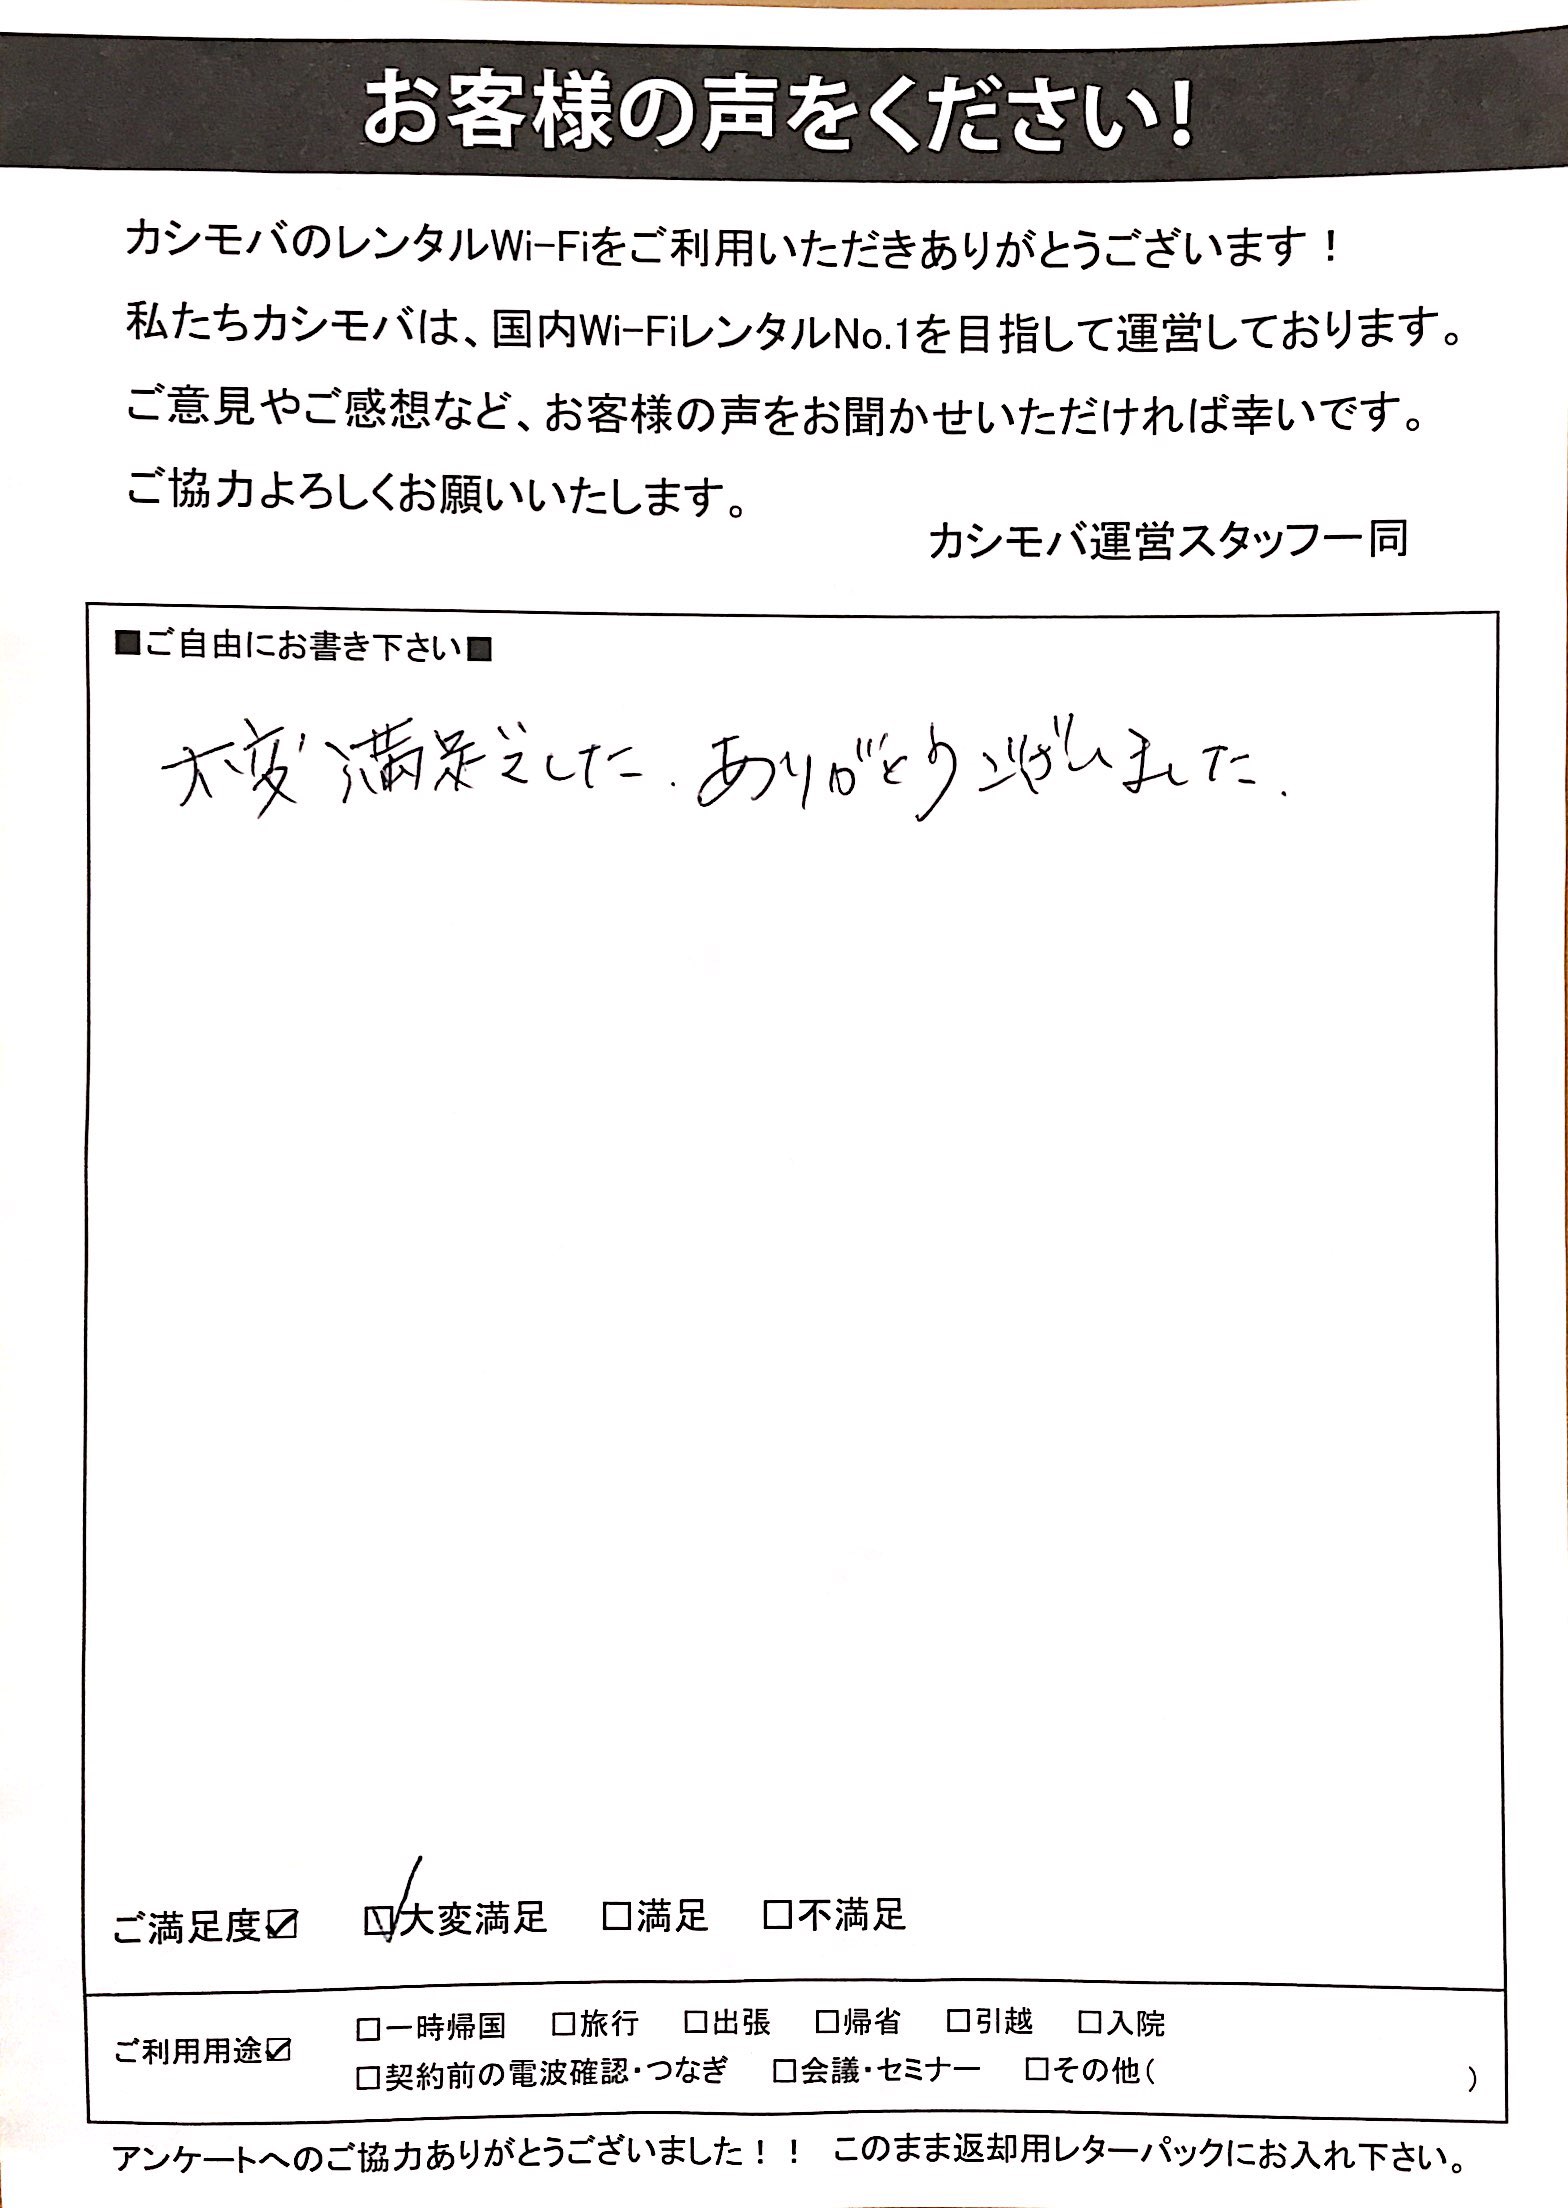 お客様の声をください!
カシモバのレンタルWi-Fiをご利用いただきありがとうございます！
私たちカシモバは、国内Wi-FiレンタルNo.1を目指して運営しております。
ご意見やご感想など、お客様の声をお聞かせいただければ幸いです。
ご協力よろしくお願いいたします。
カシモバ運営スタッフ一同
■ご自由にお書き下さい■
大変満足でした. ありがとうございました.
ご満足度☑ ☑大変満足 □満足 □不満足
ご利用用途☑ □一時帰国 □旅行 □出張 □帰省 □引越 □入院
□契約前の電波確認・つなぎ □会議・セミナー □その他( )
アンケートへのご協力ありがとうございました！！ このまま返却用レターパックにお入れ下さい。